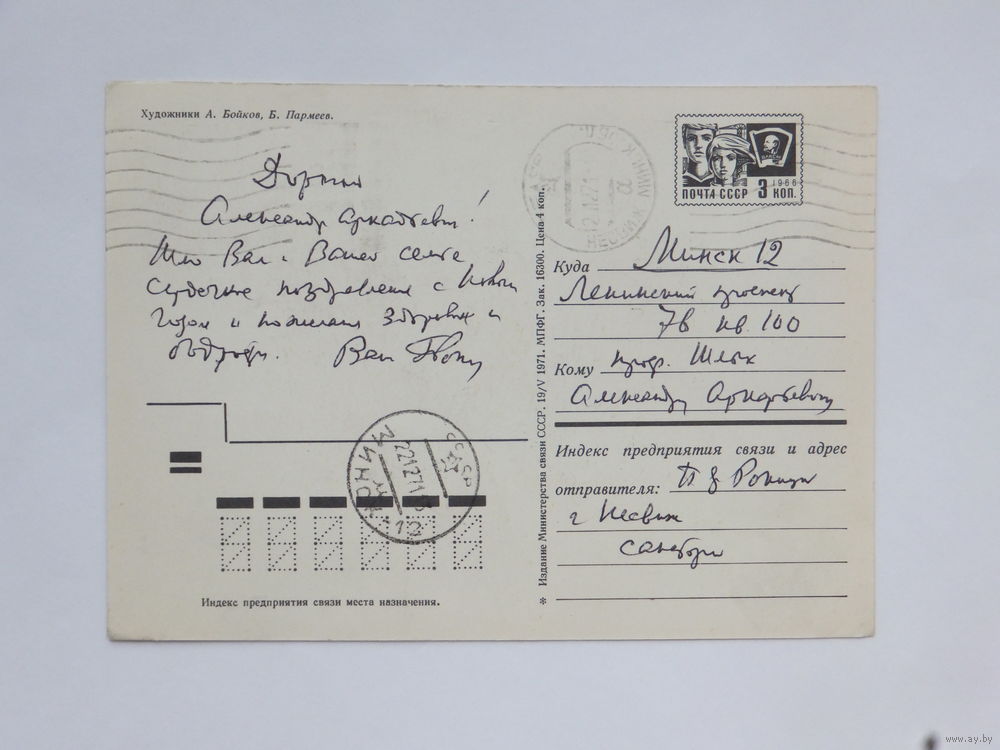 Художники А. Бойков, Б. Пармеев.
Дорогой
Александр Аркадьевич!
Шлю Вам и Вашей семье
сердечные поздравления с Новым
годом и пожелания здоровья и
бодрости. Ваш
ПОЧТА СССР 3 КОП.
1966
ВЛКСМ
Куда Минск 12
Ленинский проспект
78 кв. 100
Кому проф. Шлык
Александру Аркадьевичу
Индекс предприятия связи и адрес
отправителя:
г Несвиж
МИНСК
СССР
221271
-12
Индекс предприятия связи места назначения.
* Издание Министерства связи СССР. 19/V 1971. МПФГ. Зак. 16300. Цена 4 коп.
www.ay.by